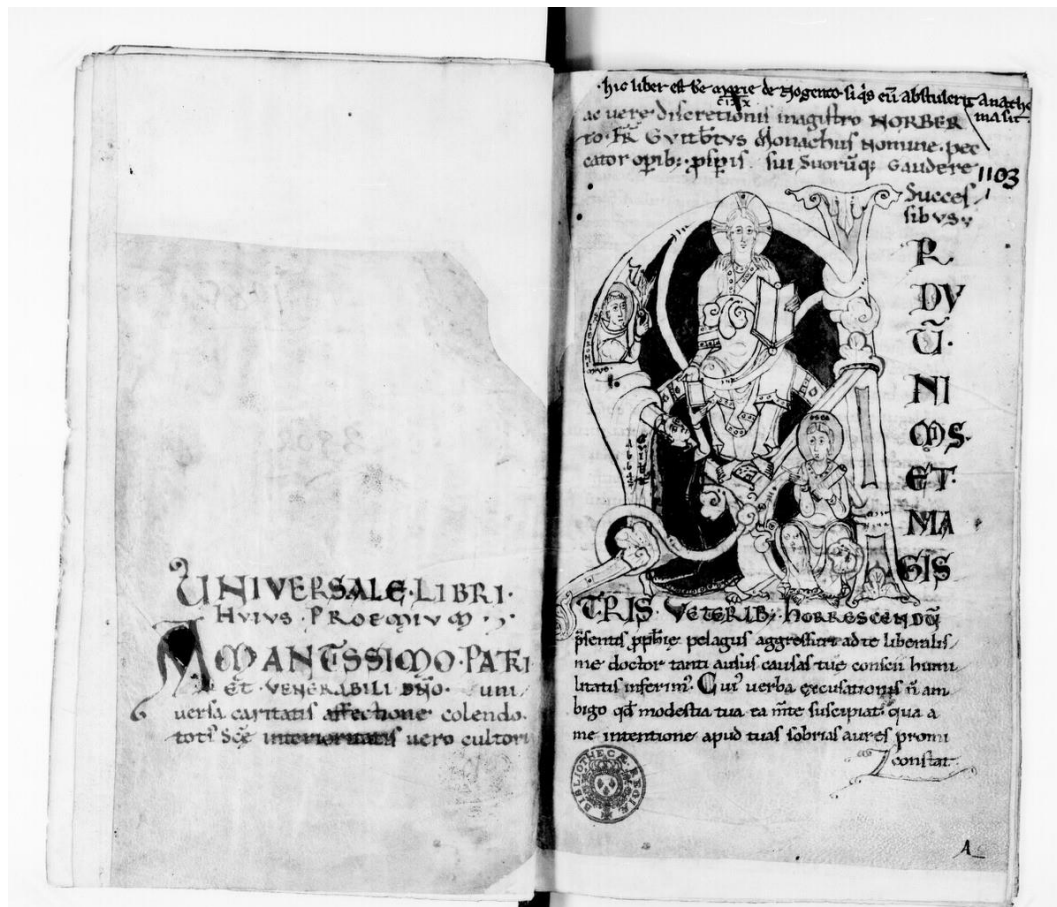 UNIVERSALE·LIBRI·
HUIUS·PROEMIUM·
AMANTISSIMO·PATRI
ET·VENERABILI DNO· uni
versa caritatis affectione colendo·
toti sce interioritatis vero cultori
hic liber est be marie de nogento si qs eu abstulerit anathe
ma sit
ac vere discretionis magistro NORBER
to· Fr Guitbtus Monachus Nomine· pec
cator opib; sui Suorūq; Gaudere
1103
Succes
sibus
R
DU
Ū·
NI
MS·
ET·
MA
GIS
TRIS VETERIB; HORRESCENDŪ
psentis pphie pelagus aggressuri ad te liberalis
me doctor tanti ausus causas tue conscii humi
litatis inferim· Cui verba excusationis n am
bigo qd modestia tua ta mte suscipiat qua a
me intentione apud tuas sobrias aures promi
constat·
BIBLIOTHECÆ REGIÆ
A